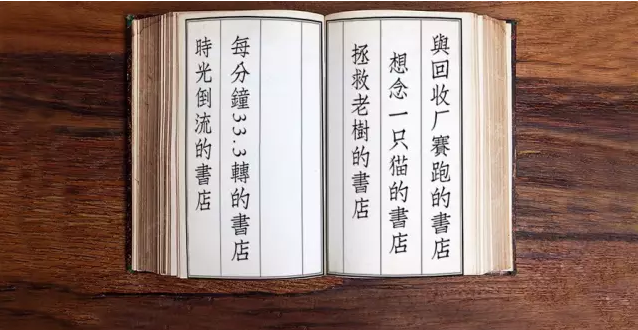 與回收厂賽跑的書店
想念一只猫的書店
拯救老樹的書店
每分鐘33.3轉的書店
時光倒流的書店